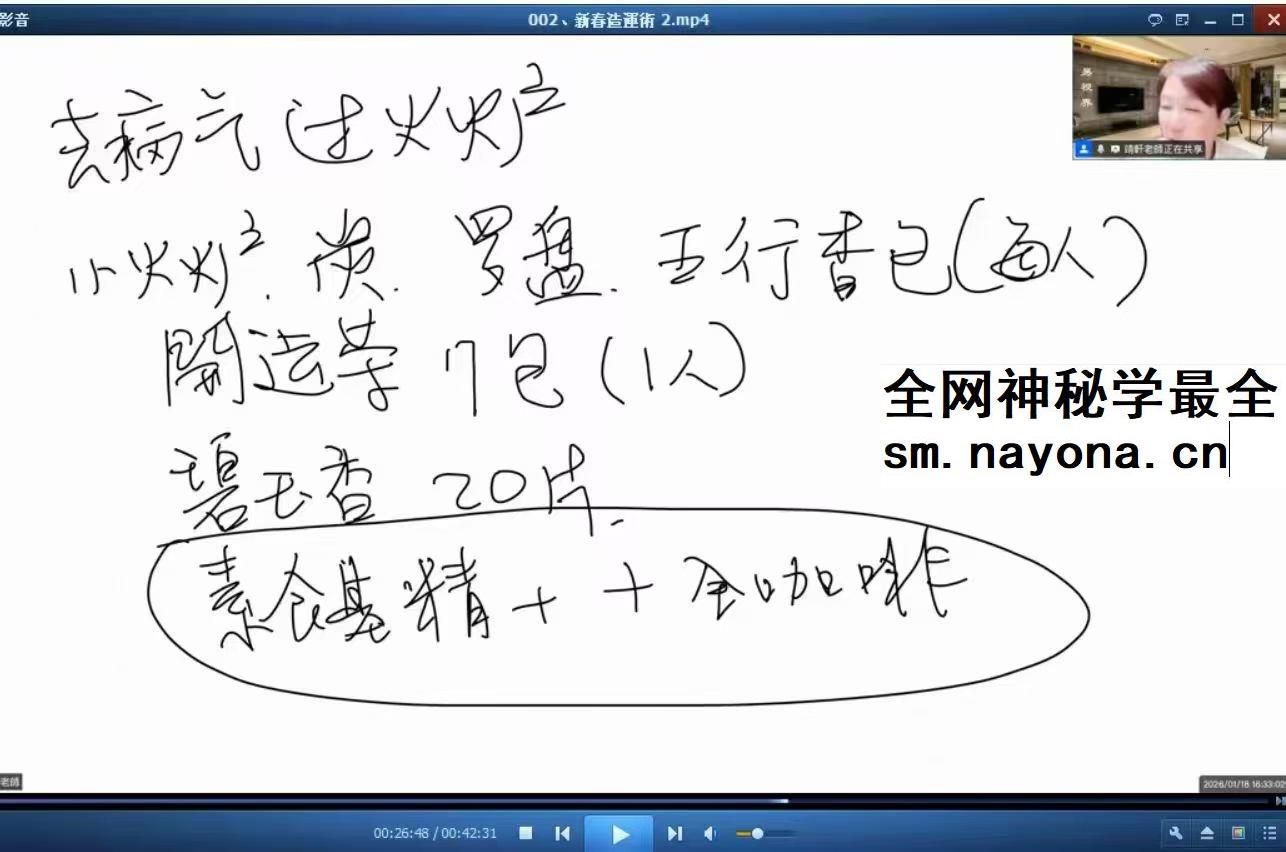 影音
002、新春造運術 2.mp4
去病气 过火炉
易視界
靖軒老師正在共享
小火炉. 炭. 罗盘. 五行香包(每人)
開运 7包(1人)
全网神秘学最全
sm.nayona.cn
碧玉香 20片.
素食基精+ + 金咖啡
老師
2026/01/18 16:33:02
00:26:48 / 00:42:31